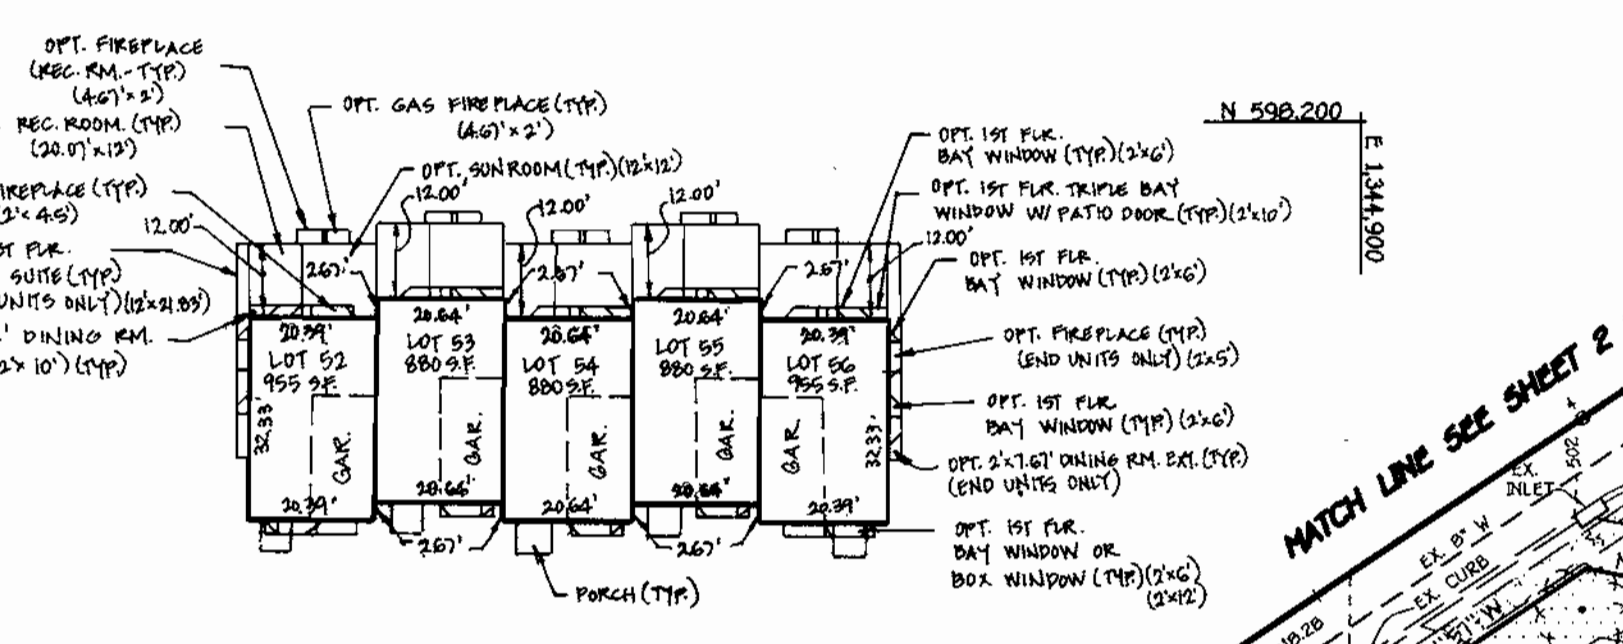 OPT. FIREPLACE
(REC. RM.- TYP.)
(4.67'x2')
REC. ROOM. (TYP.)
(20.07'x12')
IREPLACE (TYP.)
(2'x 4.5')
12.00'
ST FLR.
SUITE (TYP.)
UNITS ONLY) (12'x21.83')
' DINING RM.
2'x 10') (TYP.)
OPT. GAS FIREPLACE (TYP.)
(4.67'x2')
OPT. SUNROOM (TYP.) (12'x12')
12.00'
12.00'
12.00'
12.00'
2.67'
2.67'
2.67'
20.39'
LOT 52
955 S.F.
32.33'
GAR.
20.39'
20.64'
LOT 53
880 S.F.
GAR.
20.64'
20.64'
LOT 54
880 S.F.
GAR.
20.64'
20.64'
LOT 55
880 S.F.
GAR.
20.64'
20.39'
LOT 56
955 S.F.
GAR.
32.33'
20.39'
2.67'
2.67'
PORCH (TYP.)
OPT. 1ST FLR.
BAY WINDOW (TYP.) (2'x6')
OPT. 1ST FLR. TRIPLE BAY
WINDOW W/ PATIO DOOR (TYP.) (2'x10')
OPT. 1ST FLR.
BAY WINDOW (TYP.) (2'x6')
OPT. FIREPLACE (TYP.)
(END UNITS ONLY) (2'x5')
OPT. 1ST FLR.
BAY WINDOW (TYP.) (2'x6')
OPT. 2'x7.67' DINING RM. EXT. (TYP.)
(END UNITS ONLY)
OPT. 1ST FLR.
BAY WINDOW OR
BOX WINDOW (TYP.) (2'x6')
(2'x12')
N 598,200
E 1,344,900
MATCH LINE SEE SHEET 2
EX.
INLET
502
EX. 8" W
EX. CURB